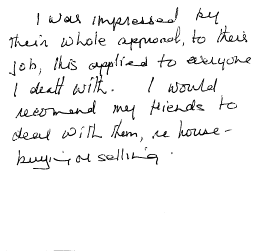 I was impressed by
their whole approach, to their
job, this applied to everyone
I dealt with. I would
recomend my friends to
deal with them, re house-
buying or selling.